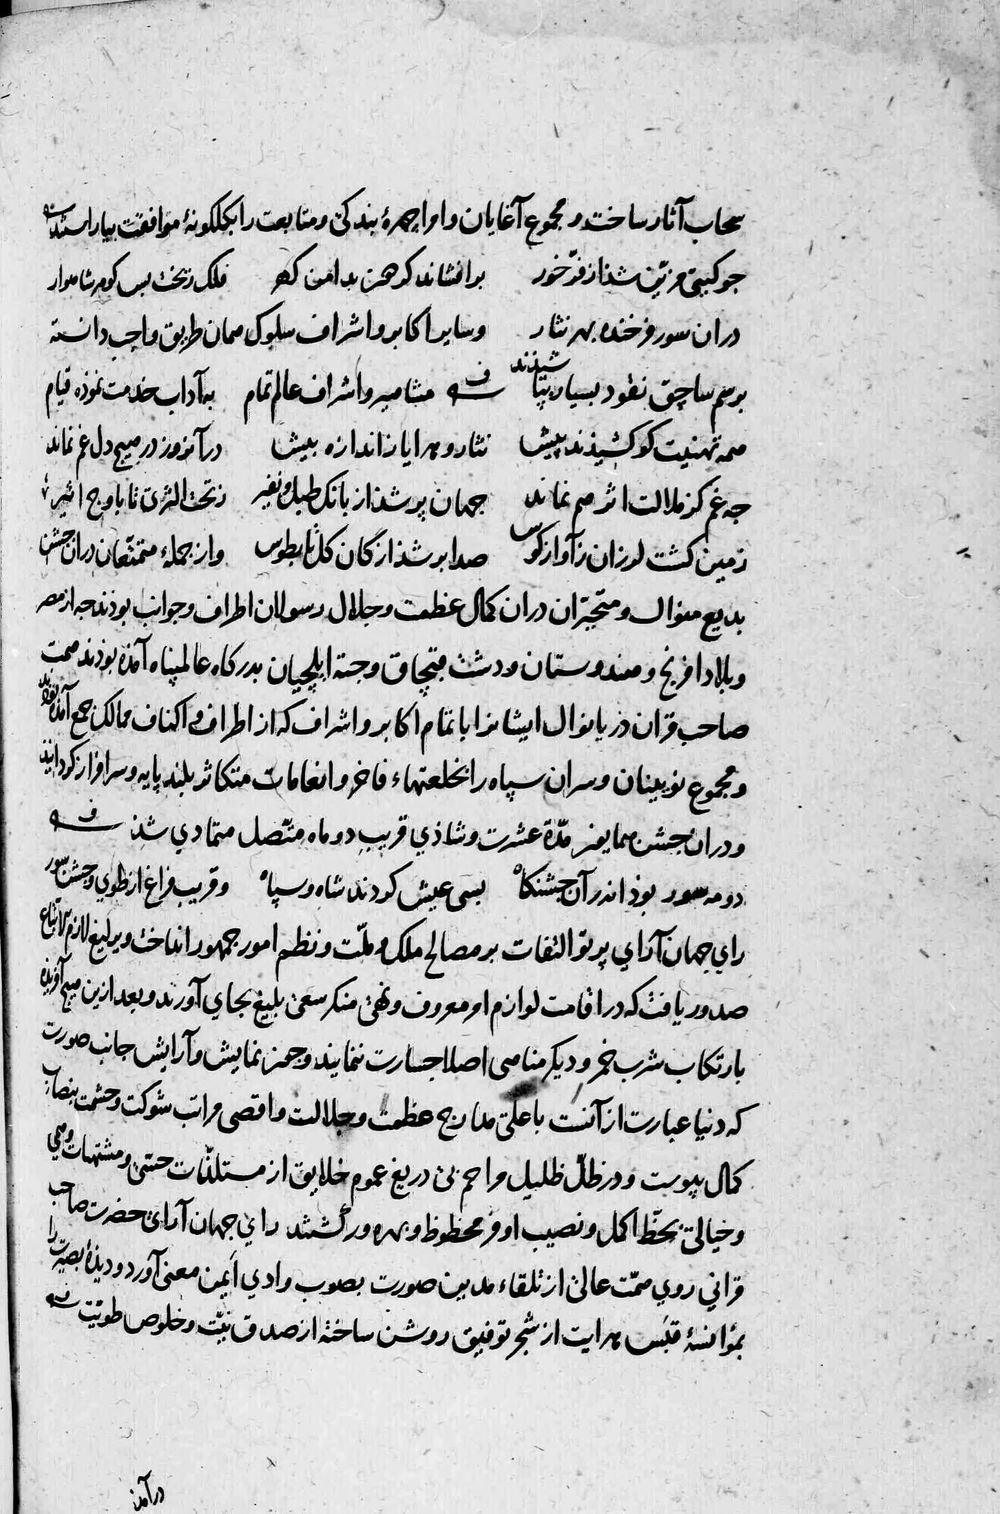 سحاب آثار ساخت و مجموع آغایان و امرا چهرهٔ بندکی و متابعت را بکلکونهٔ موافقت بیاراستند
جو کیتی مزیّن شذ از فرّ خور برافشاند کوهر بدامن فلک ریخت بس کوهر شاهوار
دران سور فرخنده بهر نثار و سایر اکابر و اشراف سلوک همان طریق واجب دانسته
برسم ساچق نقود بسیار کشیذند مشاهیر و اشراف عالم تمام به آداب خدمت نموذه قیام
همه تهنیت کو کشیذند پیش نثار و هدایا ز اندازه بیش در آنروز در هیچ دل غم نماند
جه غم کز ملالت اثر هم نماند جهان پر شذ از بانک طبل و نفیر ز تحت الثری تا باوج اثیر
زمین کشت لرزان ز آواز کوس صدا بر شذ از کان و از جملهٔ متمتّعان دران جشن
بدیع منوال و متحیّران دران کمال عظمت و جلال رسولان اطراف و جوانب بوذند جه از مصر
و بلاد افرنج و هندوستان و دشت قبچاق و جته ایلچیان بدرکاه عالمپناه آمذه بوذند همّت
صاحب قران دریا نوال ایشانرا با تمام اکابر و اشراف که از اطراف و اکناف ممالک جمع آمذه بوذند
و مجموع نویینان و سران سپاه را بخلعتهاء فاخر و انعامات متکاثر بلند پایه و سرافراز کردانید
و دران جشن همایون مدّة عشرت و شاذی قریب دو ماه متّصل متمادی شذ
دو مه سور بوذ اندر آن جشنکاه بسی عیش کردند شاه و سپاه و قریب فراغ از طوی و جشن سور
رای جهان آرای پرتو التفات بر مصالح ملک و ملّت و نظم امور جمهور انداخت و یرلیغ لازم الاتباع
صدور یافت که در اقامت لوازم امر معروف و نهی منکر سعی بلیغ بجای آورند و بعد ازین هیچ آفریده
بارتکاب شرب خمر و دیکر مناهی اصلا جسارت ننمایند و چون نمایش و آرایش جانب صورت
که دنیا عبارت از آنست باعلی مدارج عظمت و جلالت و اقصی مراتب شوکت و حشمت بنصاب
کمال پیوست و در ظلّ ظلیل مراحم بی دریغ عموم خلایق از مستلذّات حسّی و مشتهیات وهمی
و خیالی بحظّ اکمل و نصیب اوفر محظوظ و بهره ور کشتند رای جهان آرای حضرت صاحب
قرانی روی همّت عالی از تلقاء مدین صورت بصوب وادی ایمن معنی آورد و دیذهٔ بصیرت را
بمؤانسهٔ قبس هدایت از شجر توفیق روشن ساخته از صدق نیّت و خلوص طویّت
درآمذ